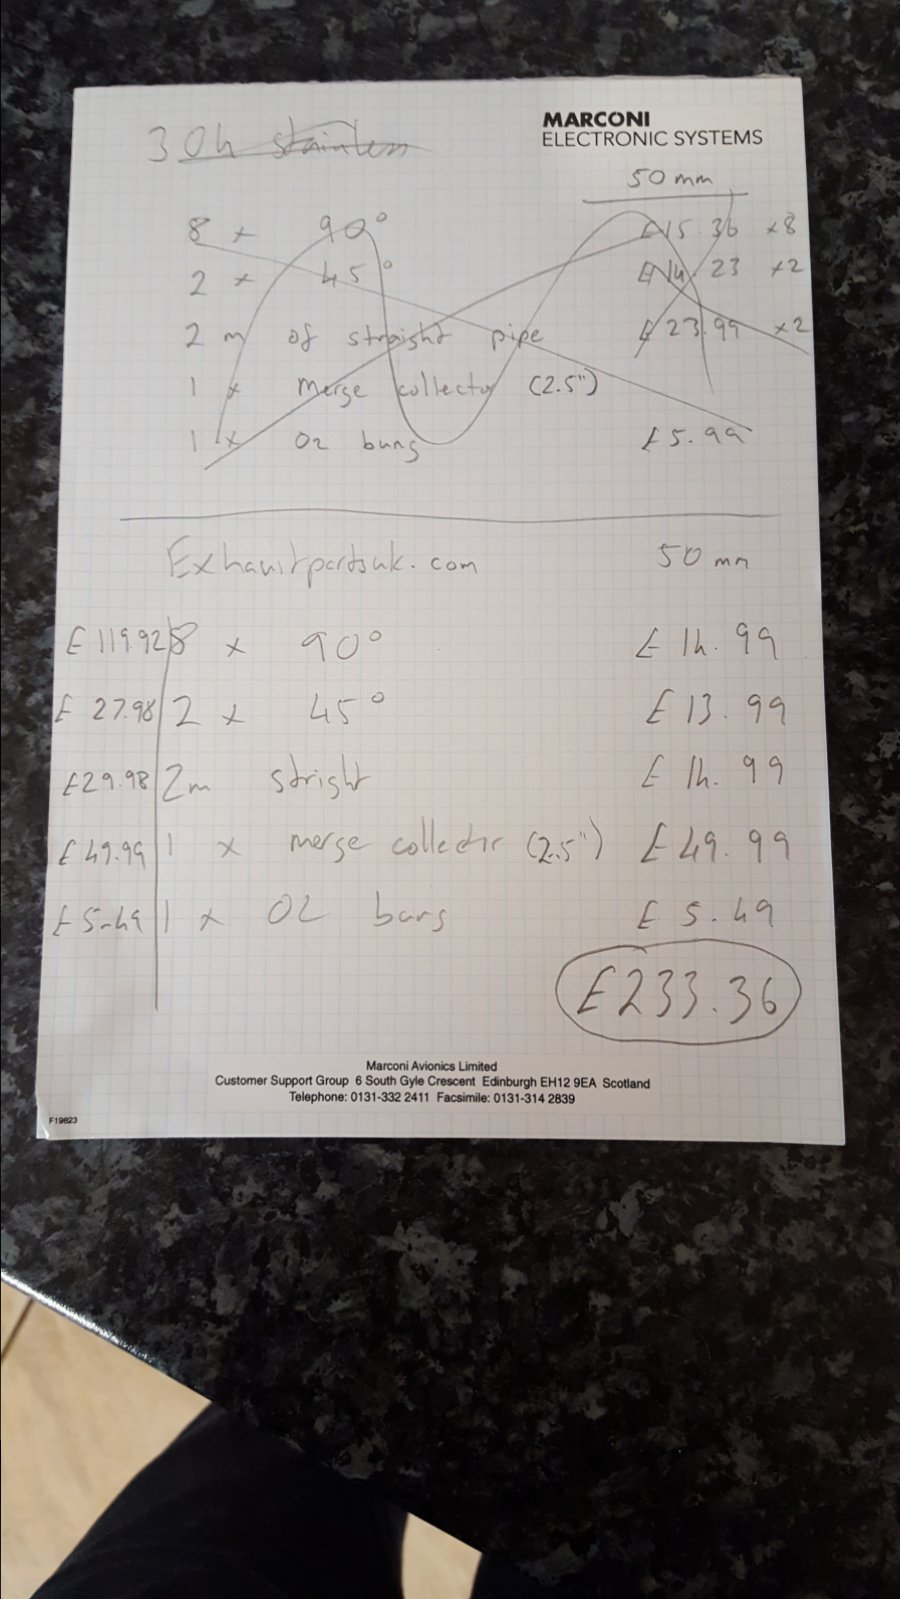 MARCONI
ELECTRONIC SYSTEMS
304 stainless
50 mm
8 x 90° £15.36 x8
2 x 45° £14.23 x2
2 m of straight pipe £23.99 x2
1 x merge collector (2.5")
1 x O2 bung £5.99
Exhaustpartsuk.com 50 mm
£119.92 8 x 90° £14.99
£27.98 2 x 45° £13.99
£29.98 2m stright £14.99
£49.99 1 x merge collector (2.5") £49.99
£5.49 1 x O2 bung £5.49
£233.36
Marconi Avionics Limited
Customer Support Group 6 South Gyle Crescent Edinburgh EH12 9EA Scotland
Telephone: 0131-332 2411 Facsimile: 0131-314 2839
F19823